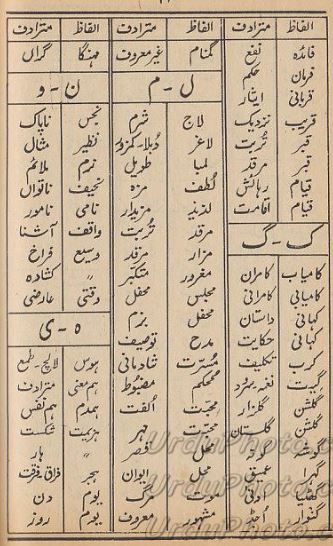 الفاظ مترادف
فائدہ نفع
فرمان حکم
قربانی ایثار
قریب نزدیک
قبر تُربت
قبر مرقد
قیام رہائش
قیام اقامت
ک - گ
کامیاب کامران
کامیابی کامرانی
کہانی داستان
کہانی حکایت
کرب تکلیف
گیت نغمہ
گلشن گلزار
گلشن گلستان
گہرا عمیق
گھٹیا
گنوار اُجڈ
الفاظ مترادف
گمنام غیر معروف
ل - م
لاج شرم
لاغر دُبلا۔ کمزور
لمبا طویل
لُطف مزہ
لذیذ مزیدار
مرقد تُربت
مزار مرقد
مغرور متکبر
مجلس محفل
محفل بزم
مدح توصیف
مُسرّت شادمانی
مُحکم مضبُوط
محبت اُلفت
محبت مہر
محل قصر
محل ایوان
موت مرگ
مشہور معروف
الفاظ مترادف
مہنگا گراں
ن - و
نجس ناپاک
نظیر مثال
نرم ملائم
نحیف ناتواں
نامی نامور
واقف آشنا
وسیع فراخ
〃 کشادہ
وقتی عارضی
ہ - ی
ہوس لالچ۔ طمع
ہم معنی مترادف
ہمدم ہم نفس
ہزیمت شکست
〃 ہار
ہجر فراق۔ فرقت
یوم دن
یوم روز
UrduPhoto.c
UrduPhoto.c
UrduPhoto.c